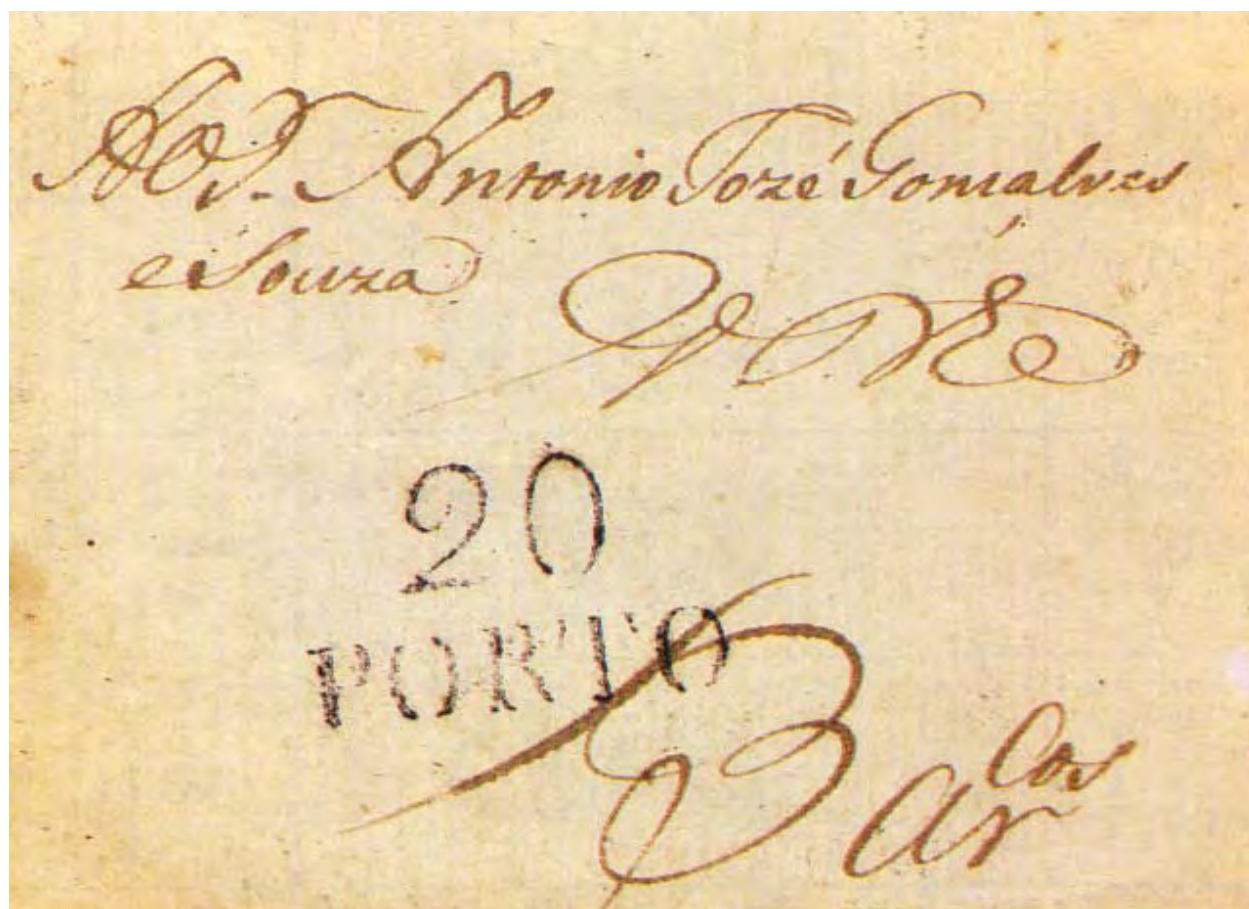 Ao Sr. Antonio Jozé Gonçalves
e Souza
20
PORTO
Barcos